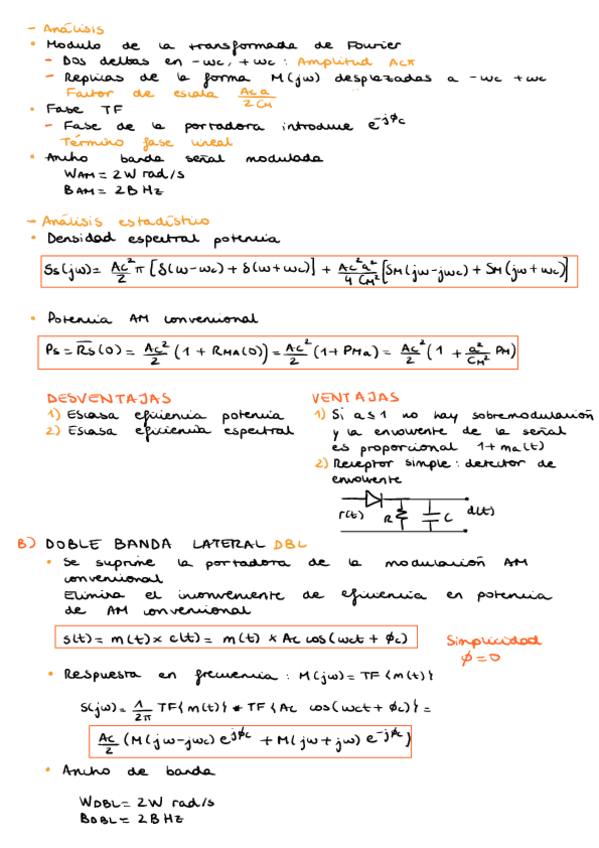 - Análisis
• Modulo de la transformada de Fourier
- Dos deltas en -wc, +wc : Amplitud Acπ
- Replicas de la forma M(jw) desplazadas a -wc +wc
Factor de escala Ac a / 2 CM
• Fase TF
- Fase de la portadora introduce e^-jϕc
Término fase lineal
• Ancho banda señal modulada
WAM = 2W rad/s
BAM = 2B Hz
- Análisis estadístico
• Densidad espectral potencia
Ss(jw) = Ac²/2 π [δ(w-wc) + δ(w+wc)] + Ac²a²/4 CM² [SM(jw-jwc) + SM(jw+wc)]
• Potencia AM convencional
Ps = R̅s(0) = Ac²/2 (1 + RMA(0)) = Ac²/2 (1+PMa) = Ac²/2 (1 + a²/CM² PM)
DESVENTAJAS
1) Escasa eficiencia potencia
2) Escasa eficiencia espectral
VENTAJAS
1) Si a≤1 no hay sobremodulación
y la envolvente de la señal
es proporcional 1+ma(t)
2) Receptor simple : detector de
envolvente
r(t) R C d(t)
B) DOBLE BANDA LATERAL DBL
• Se suprime la portadora de la modulación AM
convencional
Elimina el inconveniente de eficiencia en potencia
de AM convencional
s(t) = m(t) x c(t) = m(t) x Ac cos(wct + ϕc)
Simplicidad
ϕ=0
• Respuesta en frecuencia : M(jw) = TF {m(t)}
S(jw) = 1/2π TF{m(t)} * TF {Ac cos(wct + ϕc)} =
Ac/2 (M(jw-jwc) e^jϕc + M(jw+jw) e^-jϕc)
• Ancho de banda
WDBL = 2W rad/s
BDBL = 2B Hz